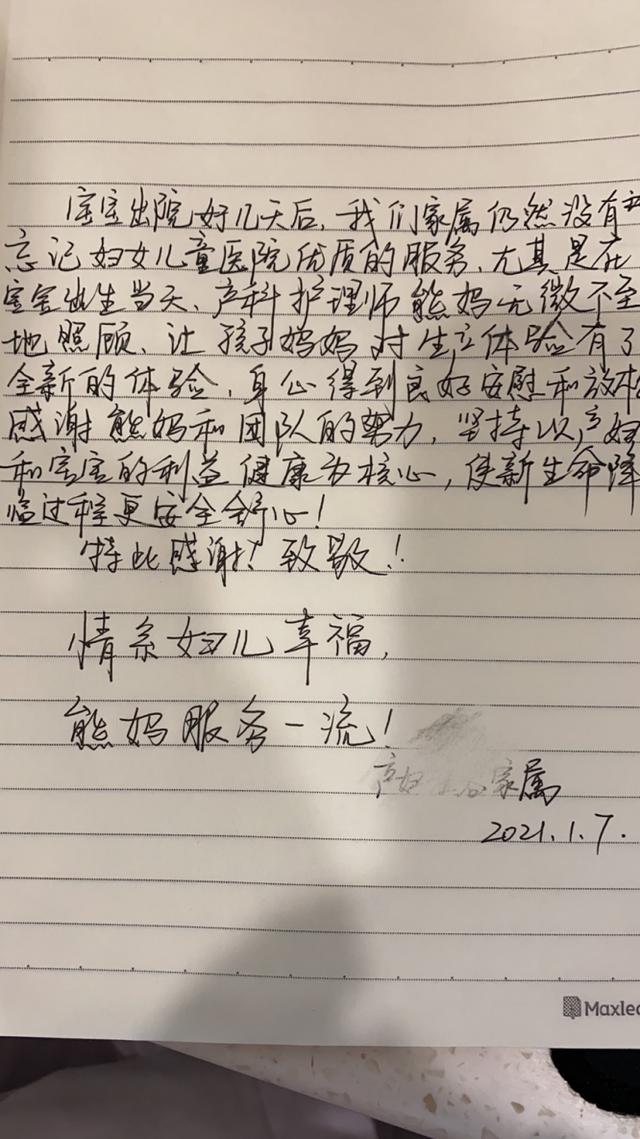 宝宝出院好几天后,我们家属仍然没有
忘记妇女儿童医院优质的服务、尤其是在
宝宝出生当天、产科护理师熊妈无微不至
地照顾、让孩子妈妈对生立体验有了
全新的体验,身心得到良好安慰和放松
感谢熊妈和团队的努力,坚持以产妇
和宝宝的利益健康为核心,使新生命降
临过程更安全舒心!
特此感谢!致敬!
情系妇儿幸福,
熊妈服务一流!
产妇 家属
2021.1.7.
Maxlea